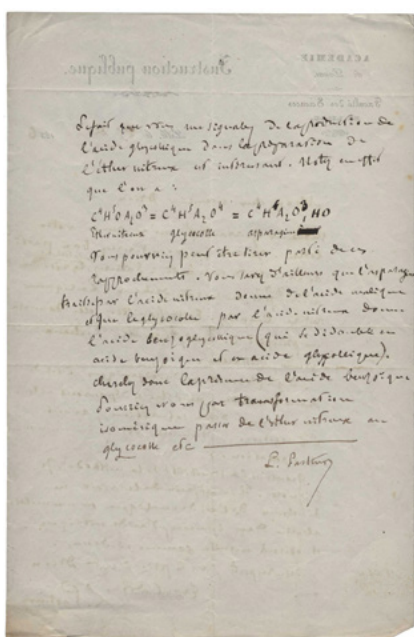 Le fait que vous me signalez de la production de
l'acide glycollique dans la préparation de
l'Ether nitreux est intéressant. Notez en effet
que l'on a :
C⁴H⁵O A₂O³ = C⁴H⁵A₂O⁴ = C⁴H⁴A₂O³, HO
Ether nitreux glycocolle asparagine
Vous pourriez peut être tirer parti de ces
rapprochements. Vous savez d'ailleurs que l'asparagine
traitée par l'acide nitreux donne de l'acide malique
et que le glycocolle par l'acide nitreux donne
l'acide benzoglycollique (qui se dédouble en
acide benzoïque et en acide glycollique).
cherchez donc la présence de l'acide benzoïque
Pourriez vous par transformation
isomérique passer de l'éther nitreux au
glycocolle etc
L. Pasteur